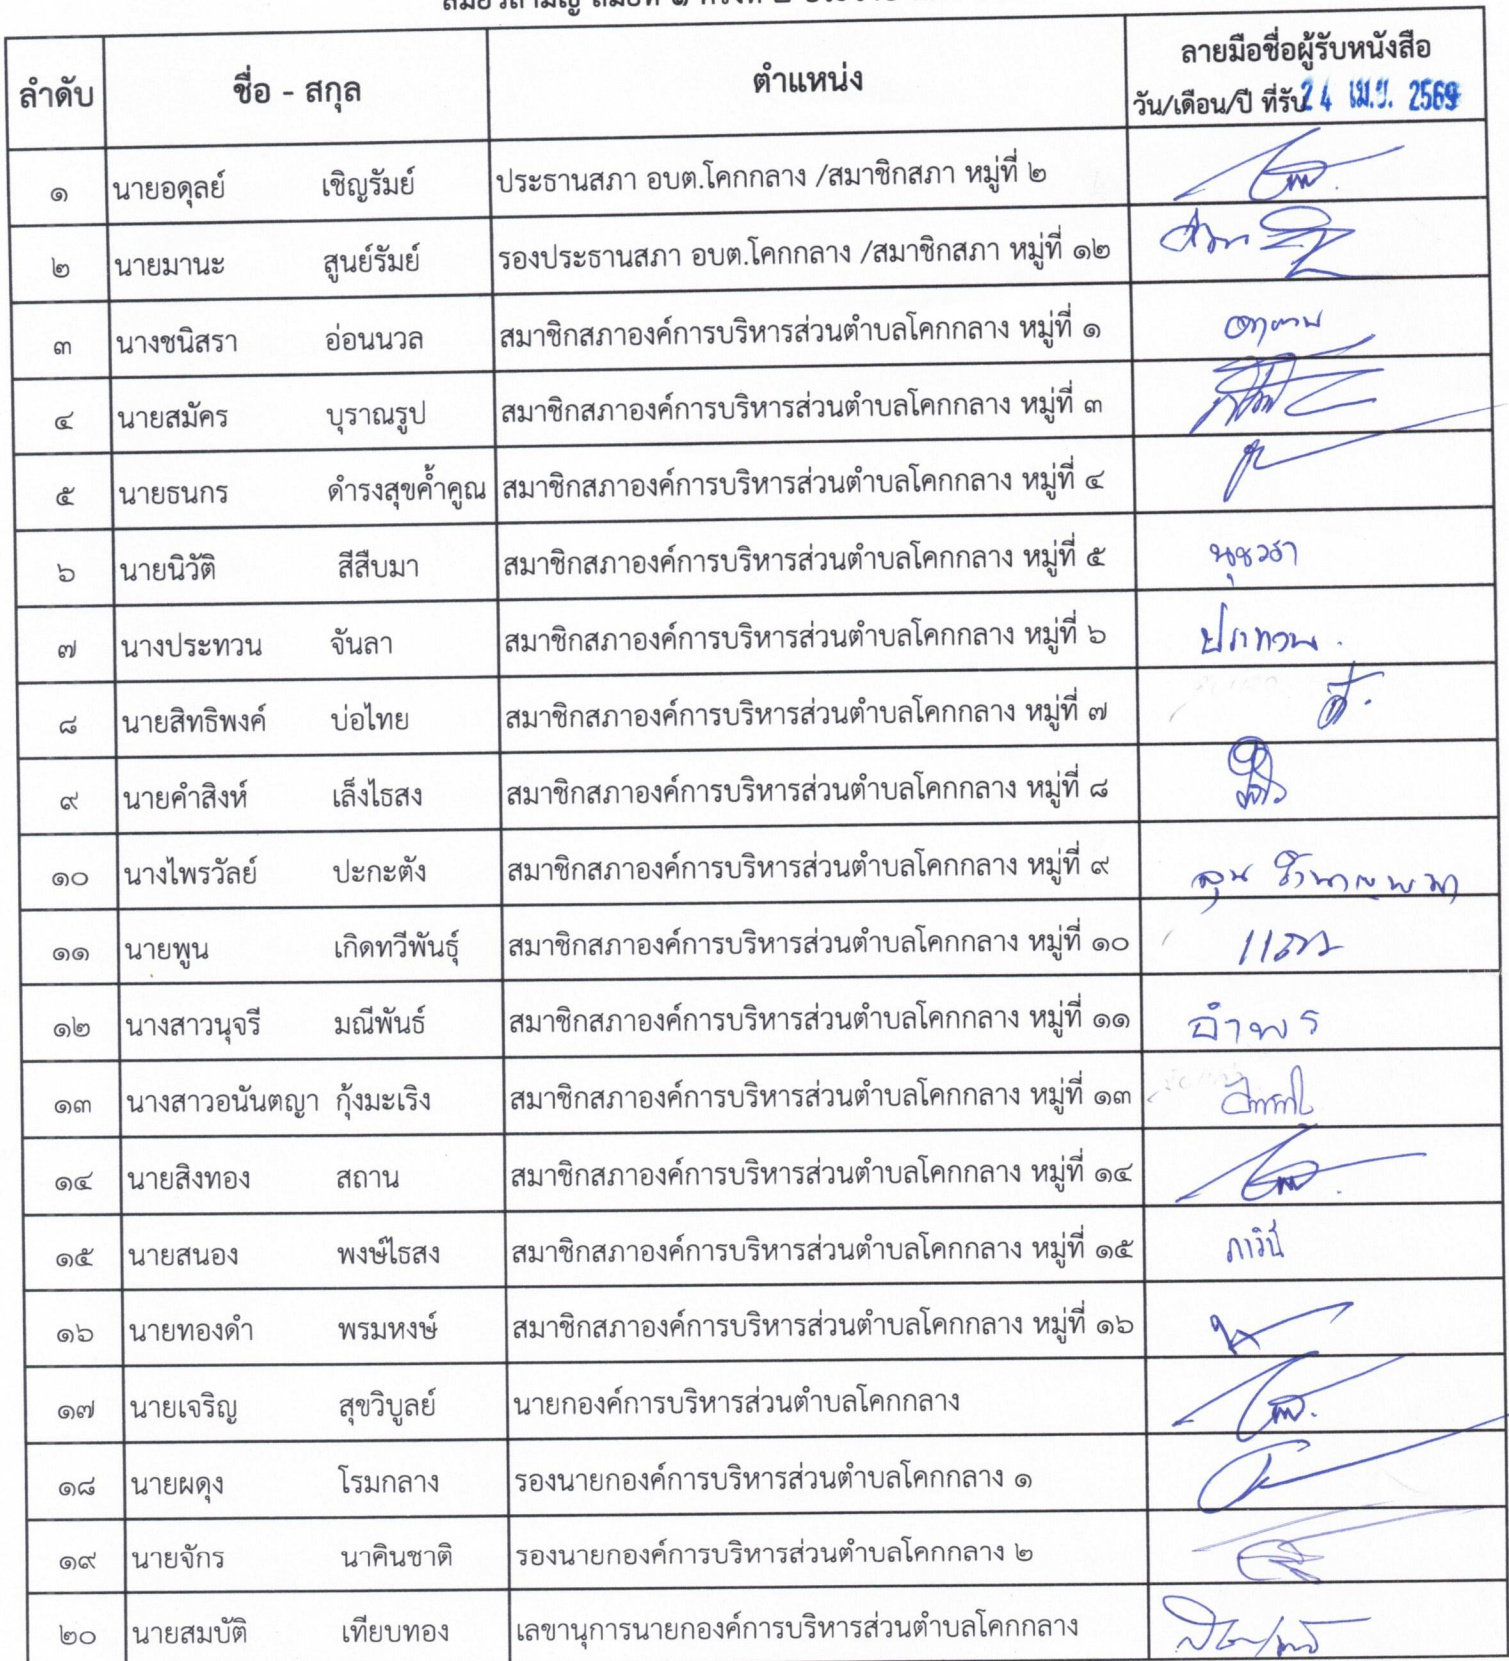 ลำดับ ชื่อ - สกุล ตำแหน่ง ลายมือชื่อผู้รับหนังสือ
วัน/เดือน/ปี ที่รับ 24 เม.ย. 2569
๑ นายอดุลย์ เชิญรัมย์ ประธานสภา อบต.โคกกลาง /สมาชิกสภา หมู่ที่ ๒
๒ นายมานะ สูนย์รัมย์ รองประธานสภา อบต.โคกกลาง /สมาชิกสภา หมู่ที่ ๑๒
๓ นางชนิสรา อ่อนนวล สมาชิกสภาองค์การบริหารส่วนตำบลโคกกลาง หมู่ที่ ๑
๔ นายสมัคร บุราณรูป สมาชิกสภาองค์การบริหารส่วนตำบลโคกกลาง หมู่ที่ ๓
๕ นายธนกร ดำรงสุขค้ำคูณ สมาชิกสภาองค์การบริหารส่วนตำบลโคกกลาง หมู่ที่ ๔
๖ นายนิวัติ สีสืบมา สมาชิกสภาองค์การบริหารส่วนตำบลโคกกลาง หมู่ที่ ๕ นุชวรา
๗ นางประทวน จันลา สมาชิกสภาองค์การบริหารส่วนตำบลโคกกลาง หมู่ที่ ๖ ประทวน
๘ นายสิทธิพงค์ บ่อไทย สมาชิกสภาองค์การบริหารส่วนตำบลโคกกลาง หมู่ที่ ๗
๙ นายคำสิงห์ เล็งไธสง สมาชิกสภาองค์การบริหารส่วนตำบลโคกกลาง หมู่ที่ ๘
๑๐ นางไพรวัลย์ ปะกะตัง สมาชิกสภาองค์การบริหารส่วนตำบลโคกกลาง หมู่ที่ ๙
๑๑ นายพูน เกิดทวีพันธุ์ สมาชิกสภาองค์การบริหารส่วนตำบลโคกกลาง หมู่ที่ ๑๐
๑๒ นางสาวนุจรี มณีพันธ์ สมาชิกสภาองค์การบริหารส่วนตำบลโคกกลาง หมู่ที่ ๑๑ อำพร
๑๓ นางสาวอนันตญา กุ้งมะเริง สมาชิกสภาองค์การบริหารส่วนตำบลโคกกลาง หมู่ที่ ๑๓
๑๔ นายสิงทอง สถาน สมาชิกสภาองค์การบริหารส่วนตำบลโคกกลาง หมู่ที่ ๑๔
๑๕ นายสนอง พงษ์ไธสง สมาชิกสภาองค์การบริหารส่วนตำบลโคกกลาง หมู่ที่ ๑๕ ภาวินี
๑๖ นายทองดำ พรมหงษ์ สมาชิกสภาองค์การบริหารส่วนตำบลโคกกลาง หมู่ที่ ๑๖
๑๗ นายเจริญ สุขวิบูลย์ นายกองค์การบริหารส่วนตำบลโคกกลาง
๑๘ นายผดุง โรมกลาง รองนายกองค์การบริหารส่วนตำบลโคกกลาง ๑
๑๙ นายจักร นาคินชาติ รองนายกองค์การบริหารส่วนตำบลโคกกลาง ๒
๒๐ นายสมบัติ เทียบทอง เลขานุการนายกองค์การบริหารส่วนตำบลโคกกลาง